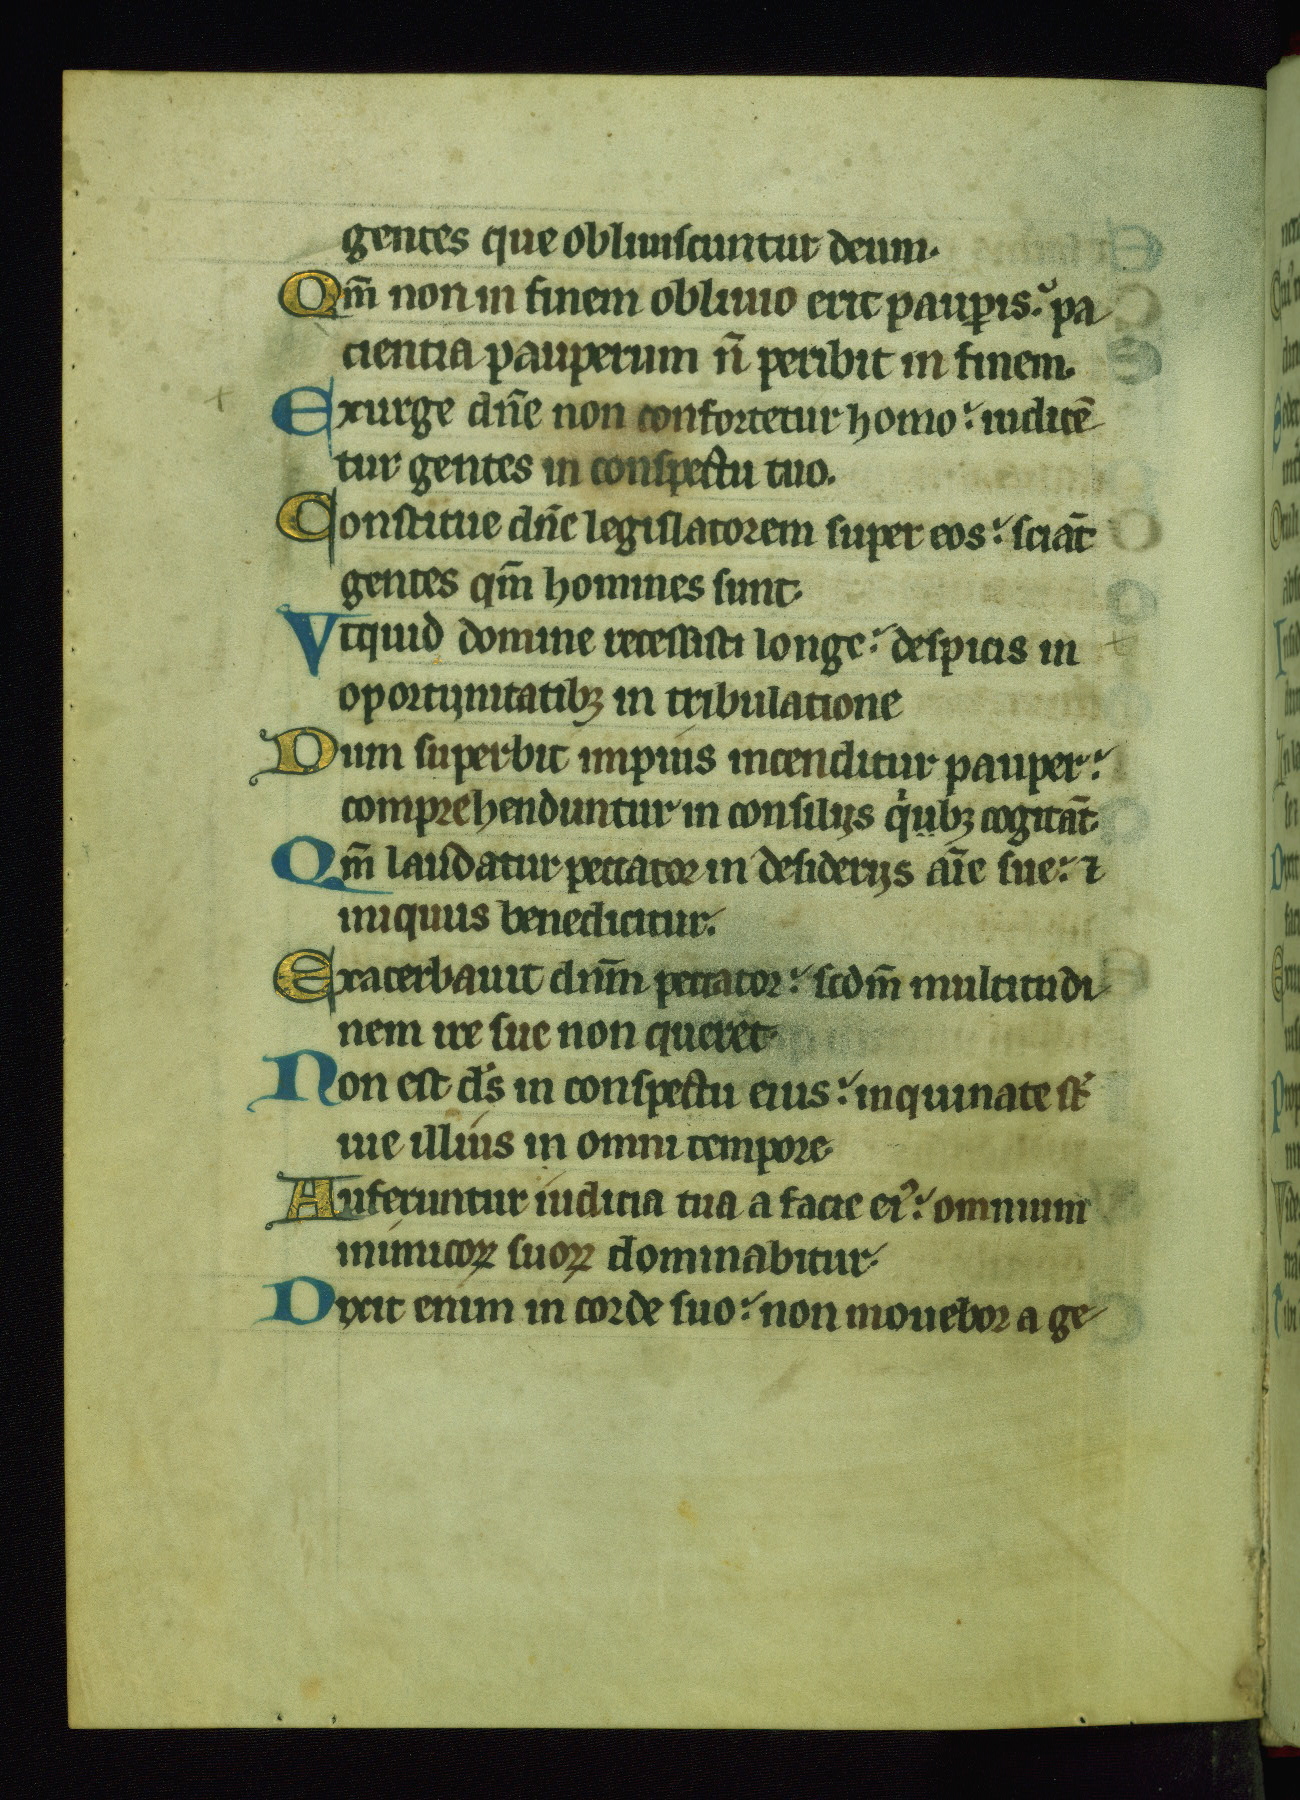 gentes que obliuiſcuntur deum.
Qm̄ non in finem obliuio erit paup̲is. pa
cientia pauperum n̄ peribit in finem.
Exurge dn̄e non confortetur homo. iudicē
tur gentes in conſpectu tuo.
Conſtitue dn̄e legiſlatorem ſuper eos. ſciāt
gentes qm̄ homines ſunt.
Vtquid domine receſſiſti longe. deſpicis in
oportunitatibꝫ in tribulatione
Dum ſuperbit impius incenditur pauper.
comprehenduntur in conſilijs qͥubꝫ cogitāt.
Qm̄ laudatur peccator in deſiderijs aīe ſue. ⁊
iniquus benedicitur.
Exacerbauit dnm̄ peccator. ſcdm̄ multitudi
nem ire ſue non queret.
Non eſt ds̄ in conſpectu eius. inquinate ſt̄
uie illius in omni tempore.
Auferuntur iudicia tua a facie eiꝰ. omnium
inimicoꝝ ſuoꝝ dominabitur.
Dixit enim in corde ſuo. non mouebor a ge